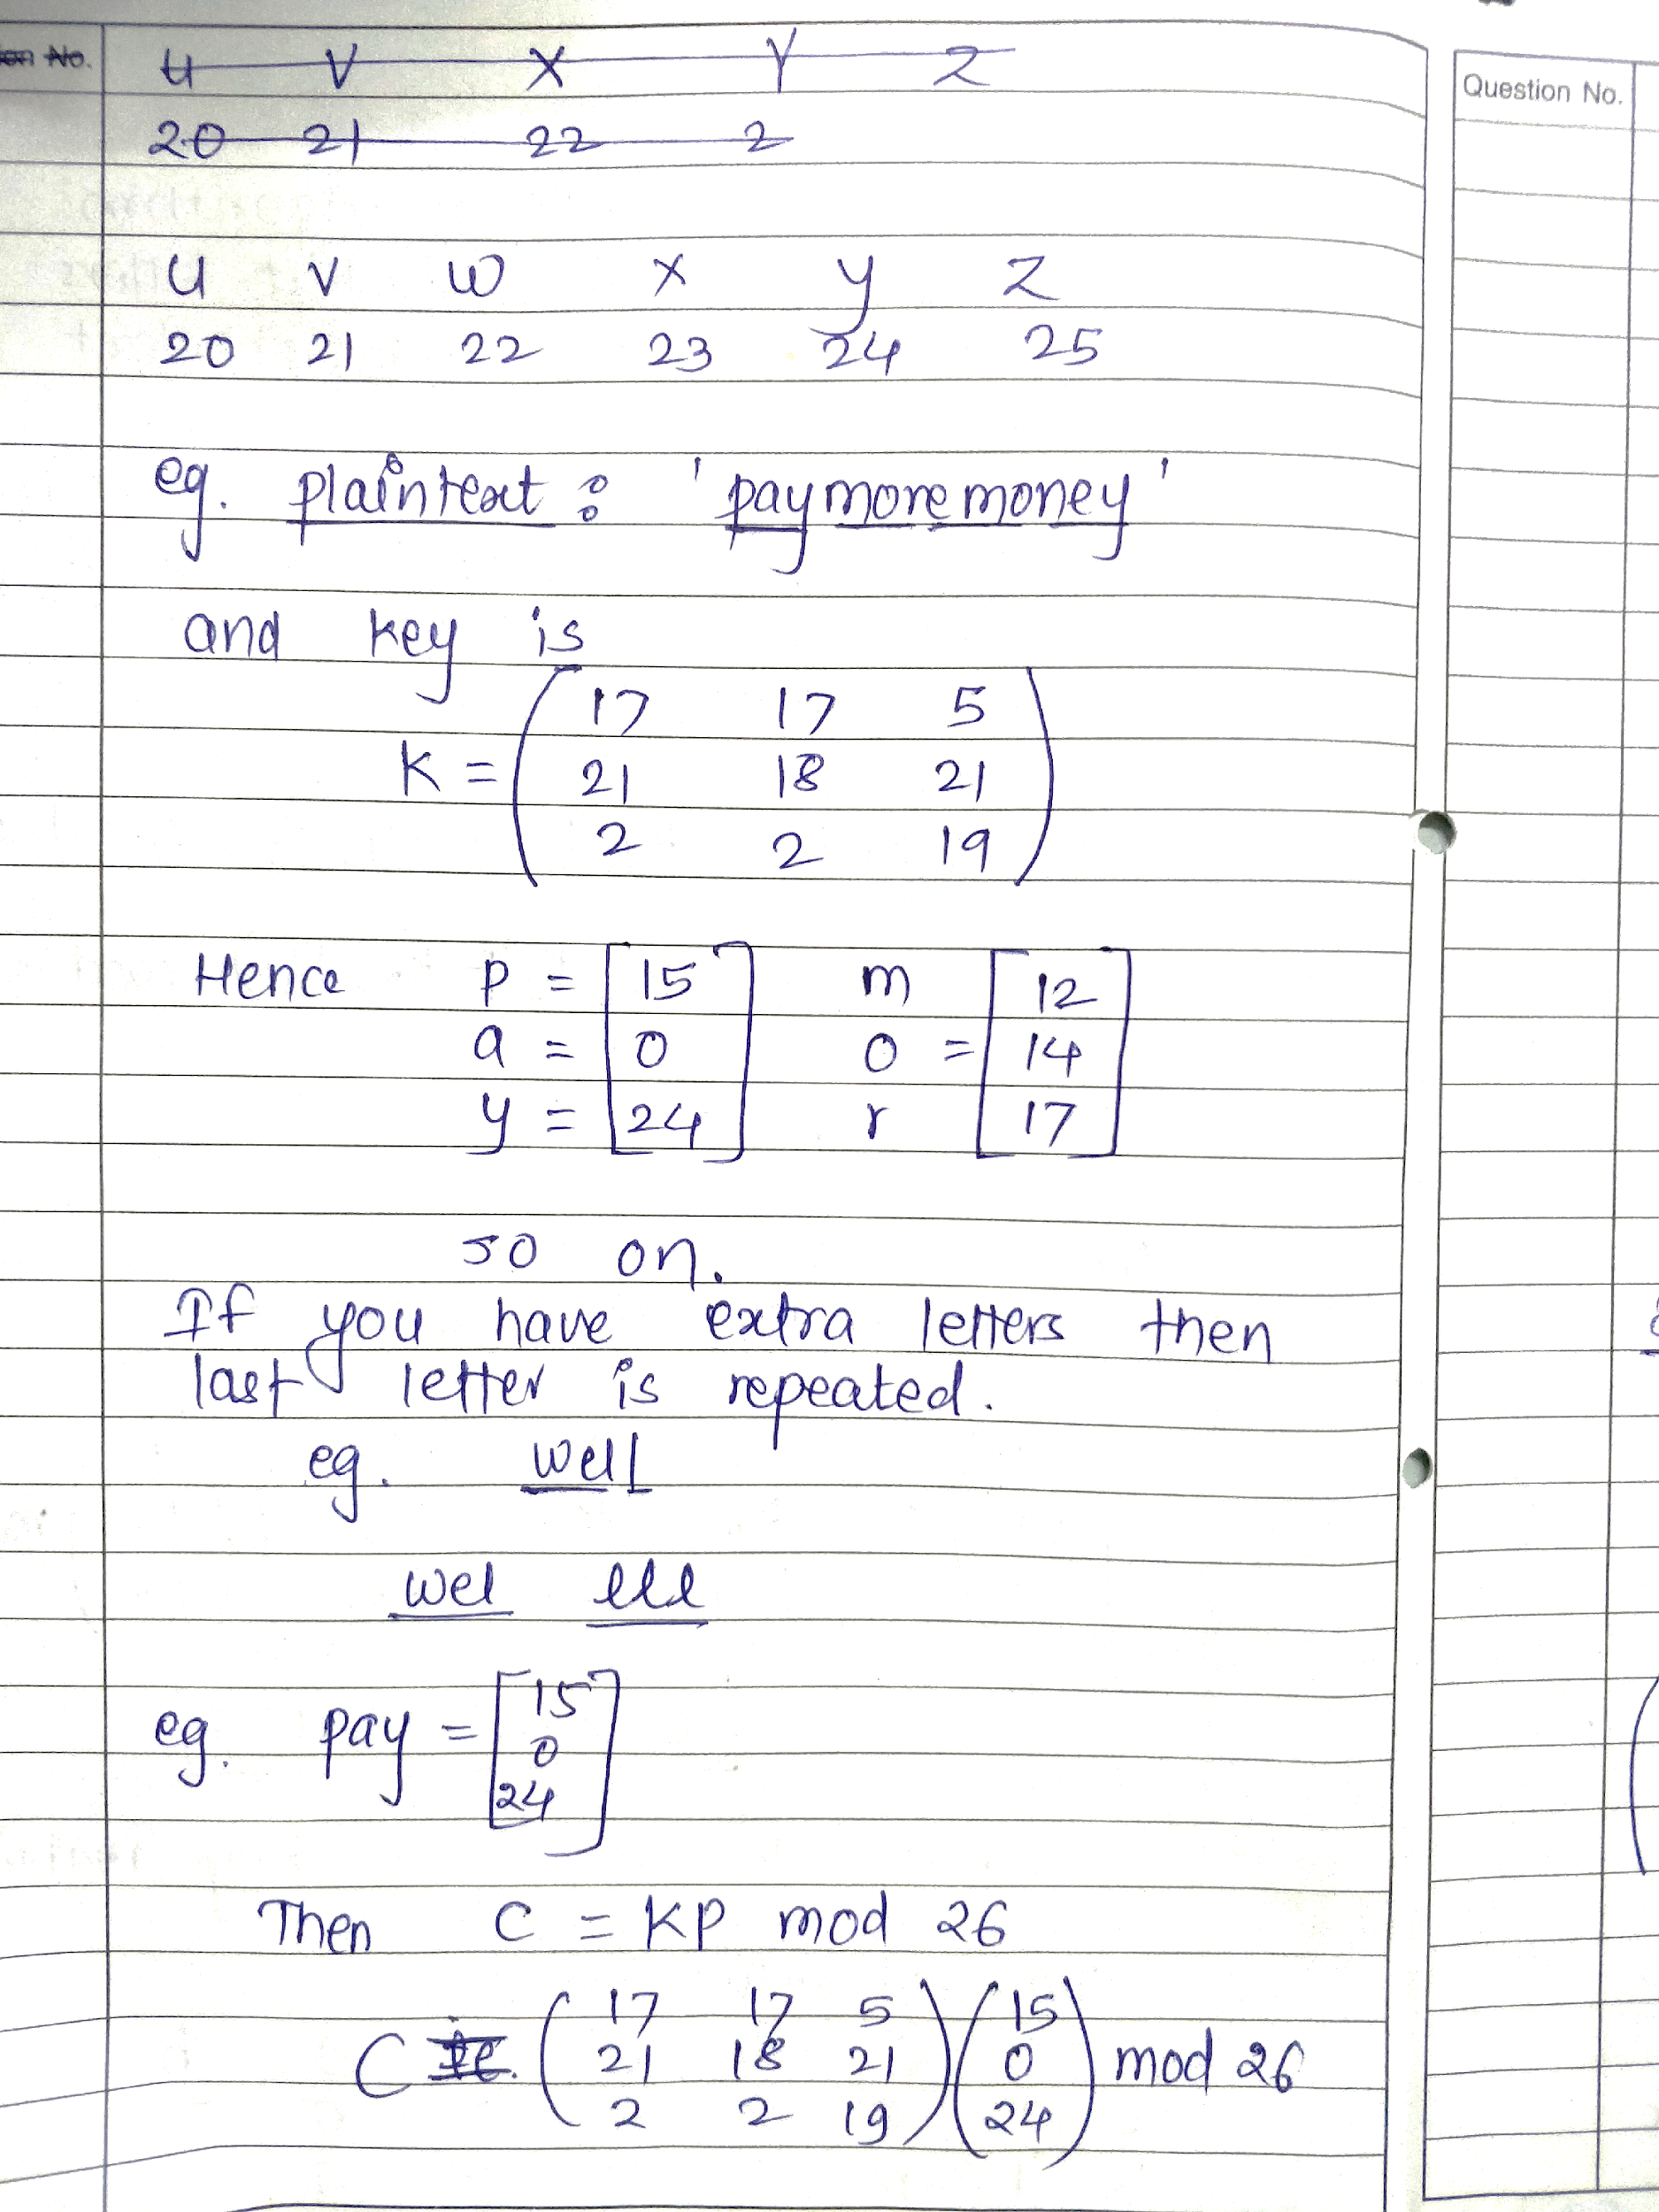 on No.
U V X Y Z
20 21 22 2
Question No.
U V W X Y Z
20 21 22 23 24 25
eg. plaintext : 'paymoremoney'
and key is
K = ( 17 17 5
21 18 21
2 2 19 )
Hence p = [ 15 m [ 12
a = 0 o = 14
y = 24 ] r 17 ]
so on.
If you have extra letters then
last letter is repeated.
eg. well
wel lll
eg. pay = [ 15
0
24 ]
Then C = KP mod 26
C ( 17 17 5 ) ( 15 )
21 18 21 0 mod 26
2 2 19 24